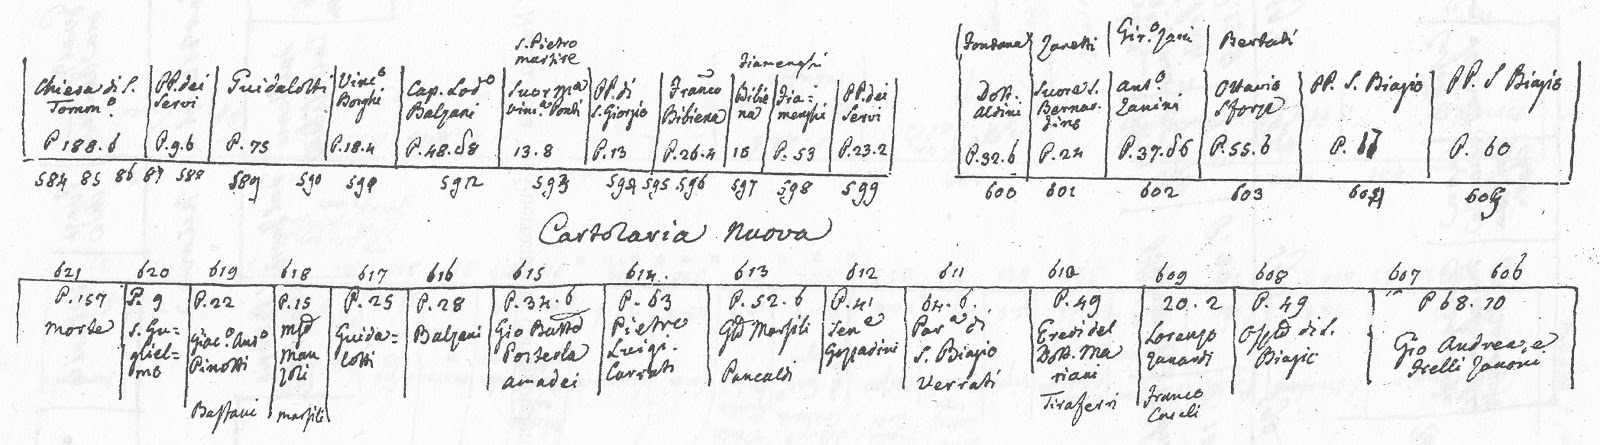 S. Pietro
martire
Fontana Zanetti Gir.o Zani Bertali
Chiesa di S. Tomm.o P 188.6
PP. dei Servi P.96
Guidalotti P. 75
Vinc.o Borghi P.18.4
Cap. Lod.o Balzani P.48.58
Suor Ma Vinc.a 13.8
PP. di S. Giorgio P.13
Franco Bibiena P.26.4
Bibiena 18
Fiamenghi
Fiamenghi P. 53
PP. dei Servi P.23.2
Dott. Aldini P.32.6
Suore S. Bernardino P.24
Ant.o Zanini P.37.56
Ottavio Sforza P.55.6
PP. S. Biagio P.
PP. S Biagio P. 60
584 85 86 87 588 589 590 591 592 593 594 595 596 597 598 599 600 601 602 603 604 605
Cartolaria Nuova
621 620 619 618 617 616 615 614. 613 612 611 610 609 608 607 606
P.157 Morte
P. 9 S. Gugliel-mo
P.22 Giac.o Ant.o Pinotti Bastani
P.15 Manzoli Marsili
P.25 Guida=lotti
P.28 Balzani
P.34.6 Gio Batta Amadei
P. 63 Pietro Luigi Carrati
P.52.6 Marsili Pancaldi
P.41 Sen.e Gozzadini
64.6. Par.a di S. Biagio Verrati
P.49 Eredi del Dott. Mariani Tiraferri
20.2 Lorenzo Zanardi Franco Caseli
P. 49 di S. Biagio
P 68.10 Gio Andrea, e Frelli Zanoni